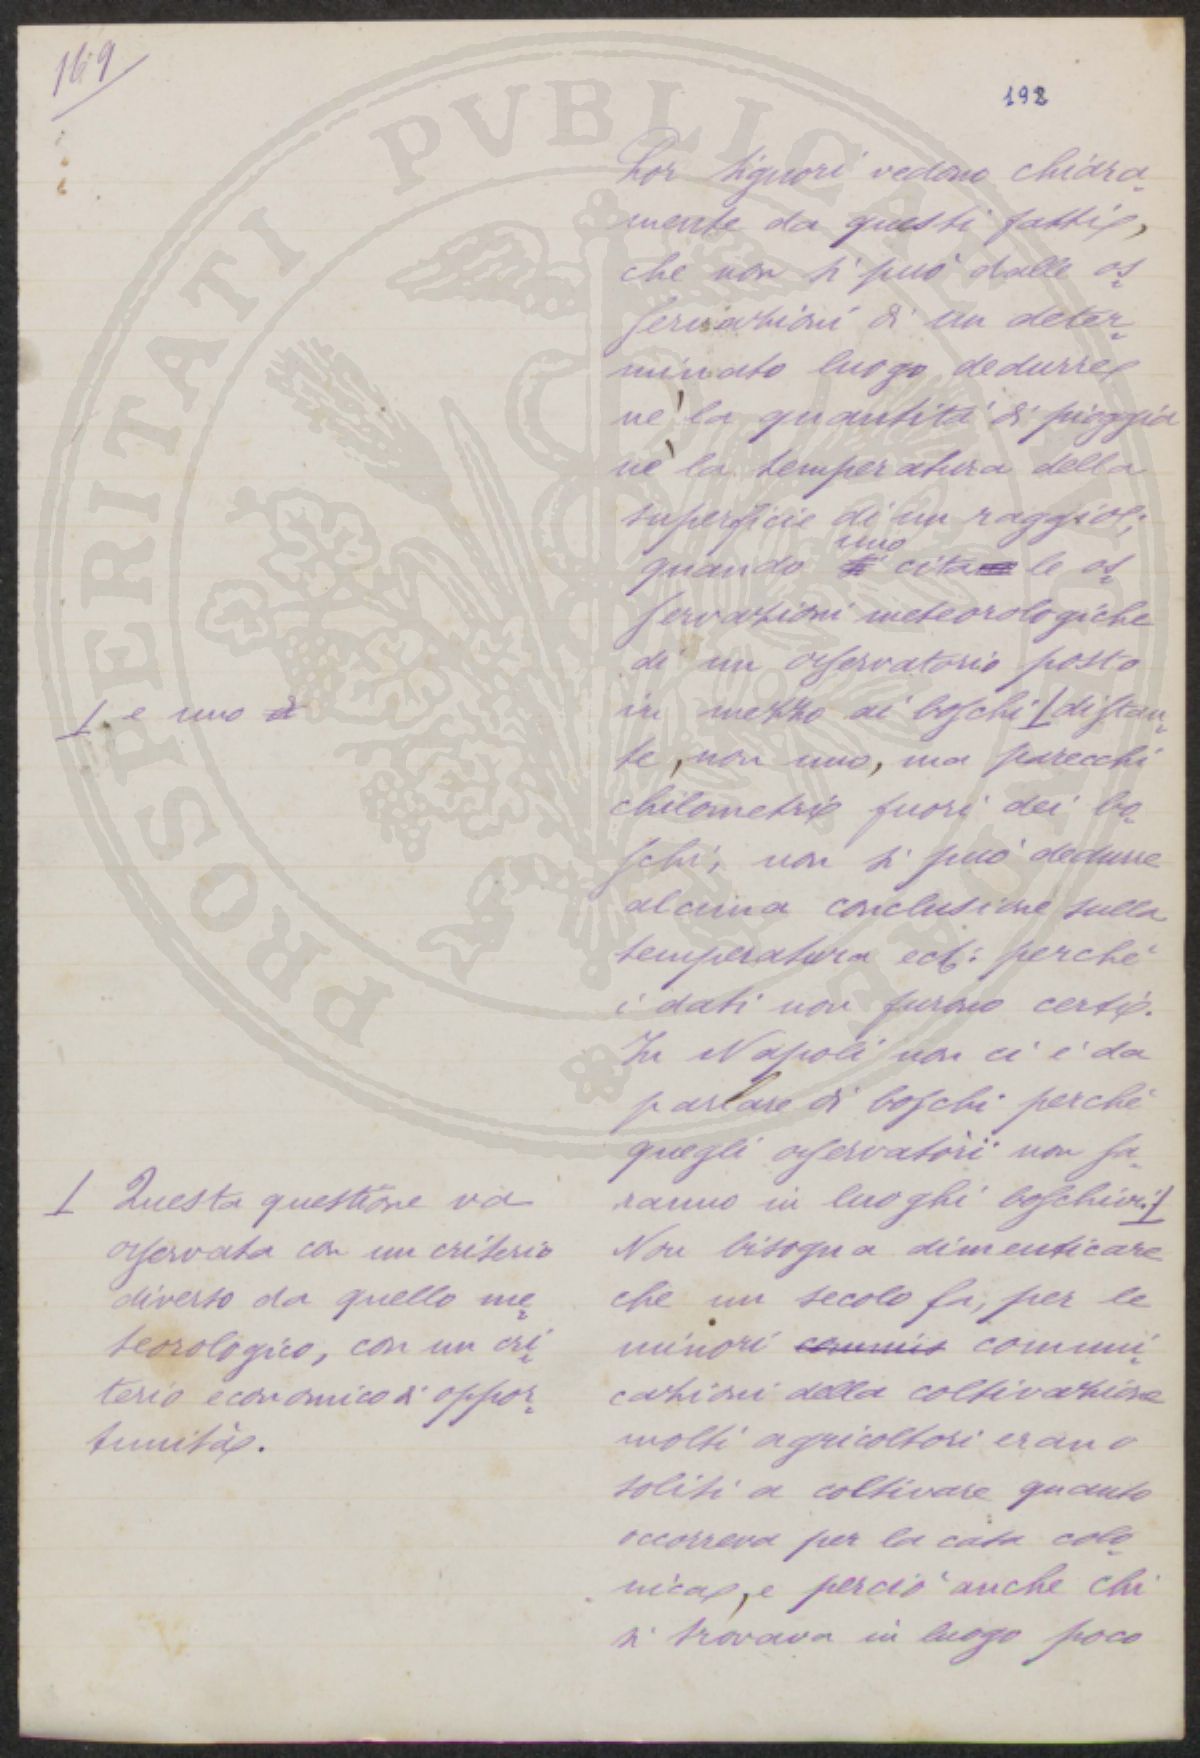 169
192
Lor Signori vedono chiara-
mente da questi fatti,
che non si può dalle os-
servazioni di un deter-
minato luogo dedurre
nè la quantità di pioggia
nè la temperatura della
superficie di un raggio;
quando uno cita le os-
servazioni meteorologiche
di un osservatorio posto
in mezzo ai boschi / distan-
te, non uno, ma parecchi
chilometri fuori dei bo-
schi, non si può dedurre
alcuna conclusione sulla
temperatura ect: perchè
i dati non furono certi.
In Napoli non ci è da
parlare di boschi perchè
quegli osservatorii non sa-
ranno in luoghi boschivi. /
Non bisogna dimenticare
che un secolo fa, per le
minori communi-
cazioni della coltivazione
molti agricoltori erano
soliti a coltivare quanto
occorreva per la casa colo-
nica, e perciò anche chi
si trovava in luogo poco
/ e uno
/ Questa questione va
osservata con un criterio
diverso da quello me-
teorologico, con un cri-
terio economico di oppor-
tunità.
PROSPERITATI PVBLICAE